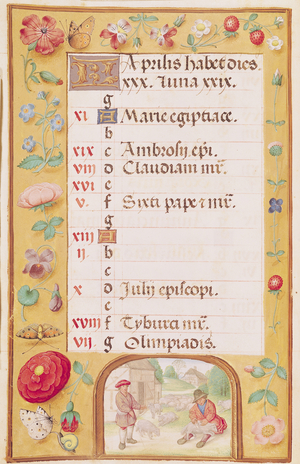 KL Aprilis habet dies
xxx. Luna xxix.
g
xi A Marie egiptiace.
b
xix c Ambrosij epi.
viii d Claudiani mr̃.
xvi e
v. f Sixti pape ⁊ mr̃.
g
xiii A
ii. b
c
x d Julij episcopi.
e
xviii f Tyburci mr̃.
vii g Olimpiadis.